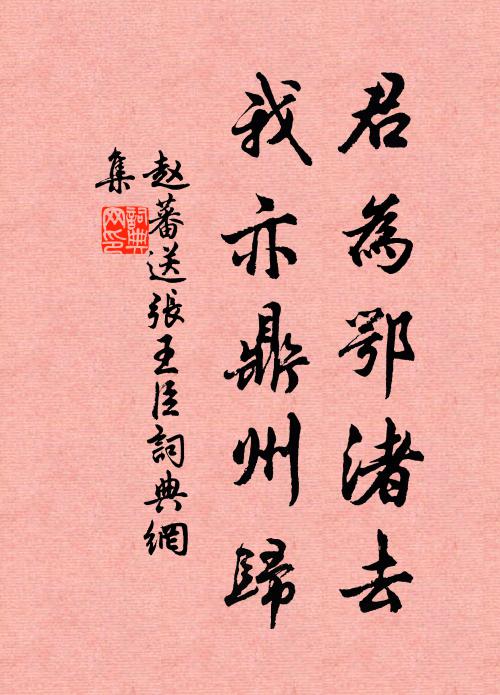 君為鄂渚去
我亦鼎州歸
赵蕃送張王臣詞典網
集
詞典网印